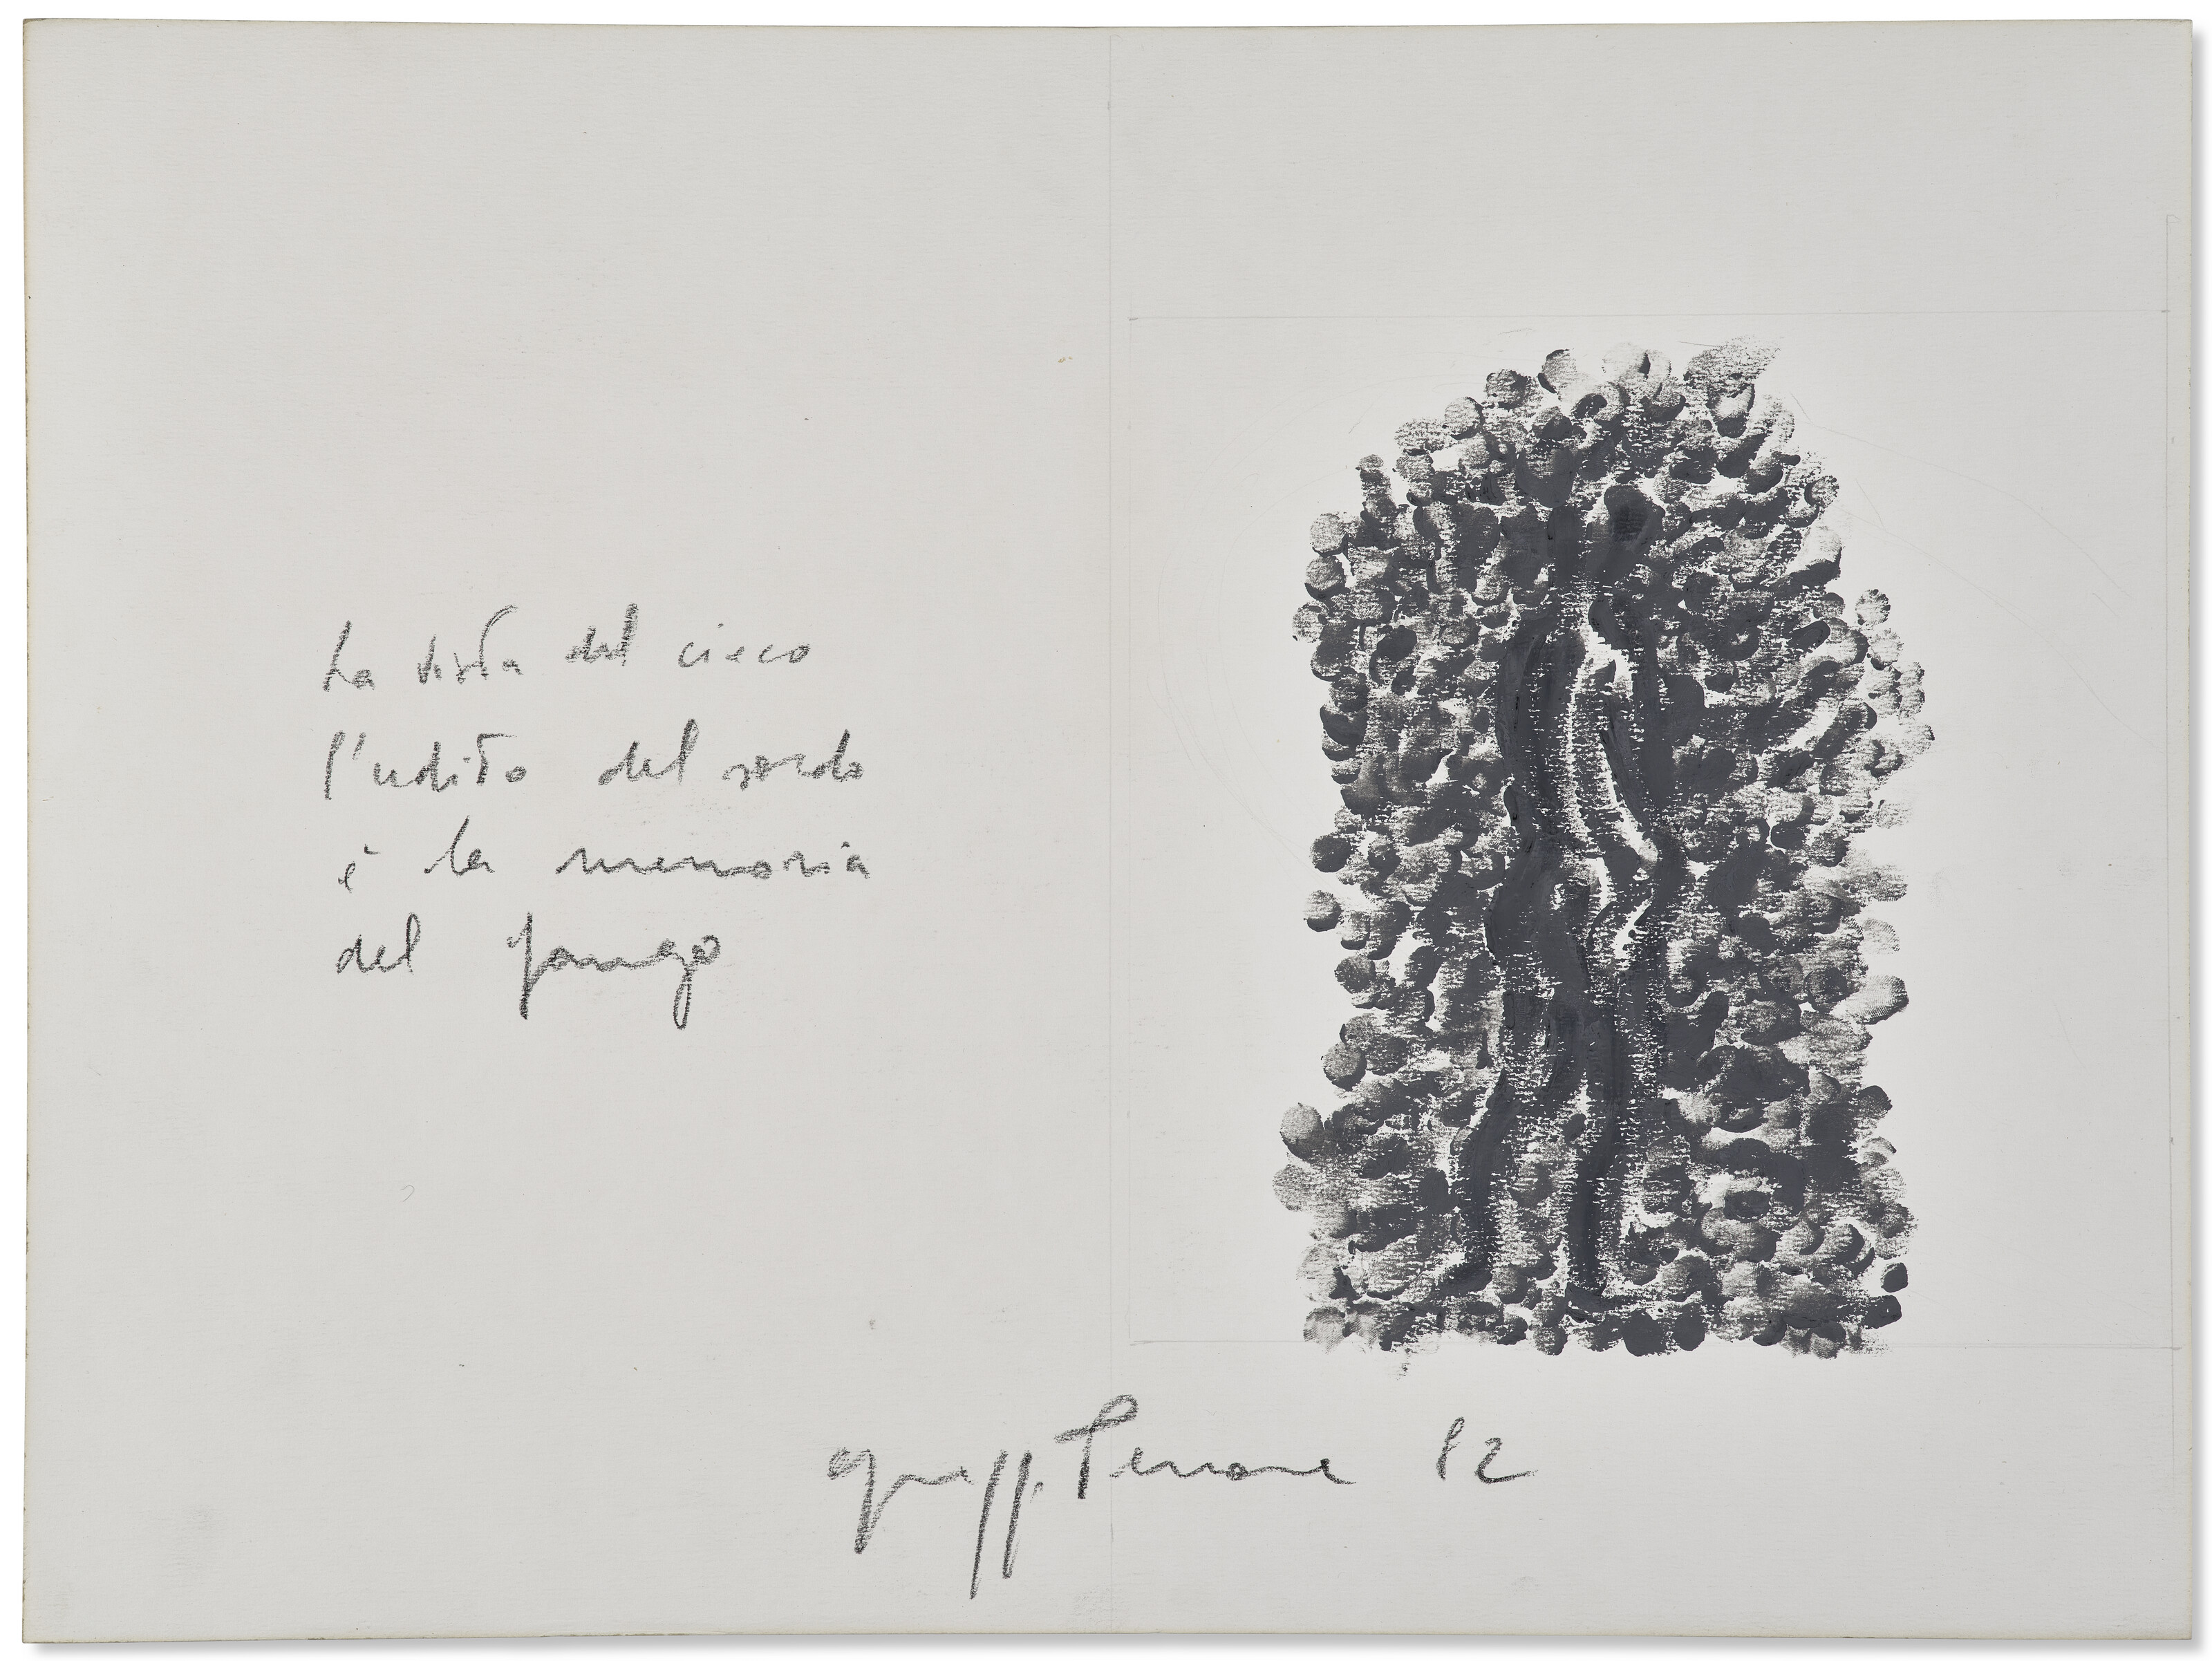 La vista del cieco
l'udito del sordo
è la memoria
del fango
Giuseppe Penone 82